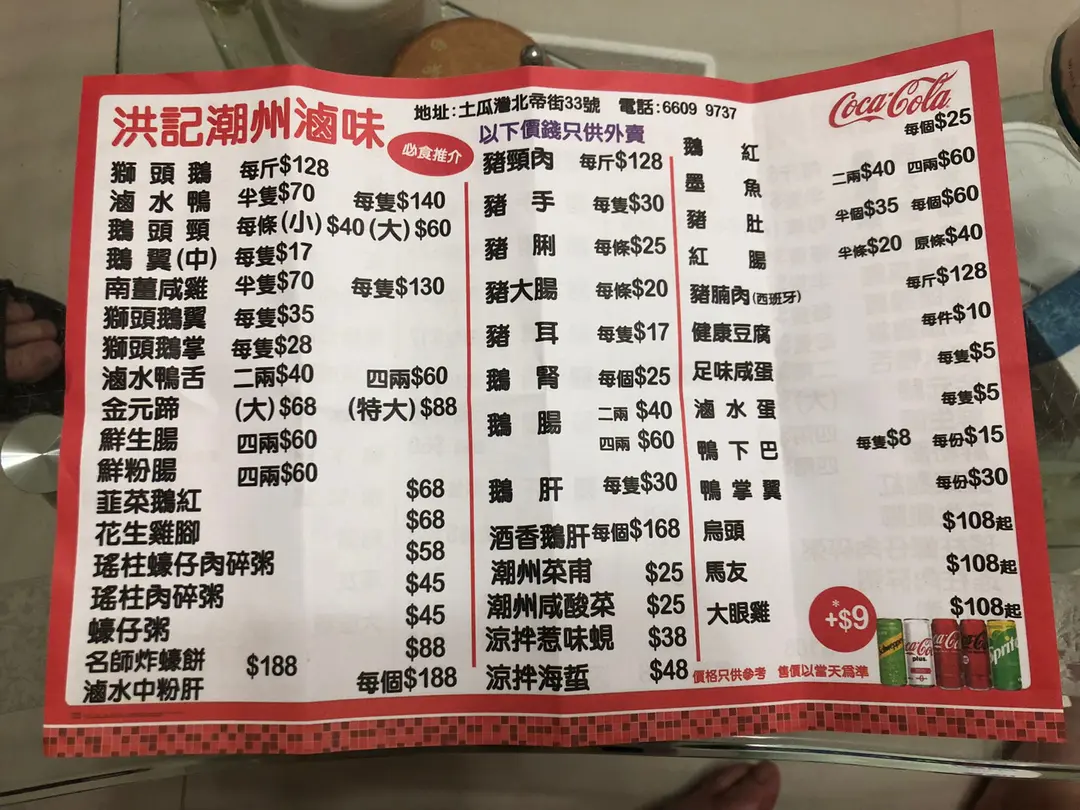 洪記潮州滷味
地址:土瓜灣北帝街33號 電話:6609 9737
必食推介
以下價錢只供外賣
Coca-Cola
獅頭鵝 每斤$128
滷水鴨 半隻$70 每隻$140
鵝頭頸 每條(小)$40(大)$60
鵝翼(中) 每隻$17
南薑咸雞 半隻$70 每隻$130
獅頭鵝翼 每隻$35
獅頭鵝掌 每隻$28
滷水鴨舌 二兩$40 四兩$60
金元蹄 (大)$68 (特大)$88
鮮生腸 四兩$60
鮮粉腸 四兩$60
韮菜鵝紅 $68
花生雞腳 $68
瑤柱蠔仔肉碎粥 $58
瑤柱肉碎粥 $45
蠔仔粥 $45
名師炸蠔餅 $88
滷水中粉肝 $188 每個$188
豬頸肉 每斤$128
豬手 每隻$30
豬脷 每條$25
豬大腸 每條$20
豬耳 每隻$17
鵝腎 每個$25
鵝腸 二兩 $40
四兩 $60
鵝肝 每隻$30
酒香鵝肝 每個$168
潮州菜甫 $25
潮州咸酸菜 $25
涼拌惹味蜆 $38
涼拌海蜇 $48
鵝紅 每個$25
墨魚 二兩$40 四兩$60
豬肚 半個$35 每個$60
紅腸 半條$20 原條$40
豬腩肉(西班牙) 每斤$128
健康豆腐 每件$10
足味咸蛋 每隻$5
滷水蛋 每隻$5
鴨下巴 每隻$8 每份$15
鴨掌翼 每份$30
烏頭 $108起
馬友 $108起
大眼雞 $108起
*+$9
Schweppes
Coca-Cola plus
Coca-Cola
Sprite
價格只供參考 售價以當天為準